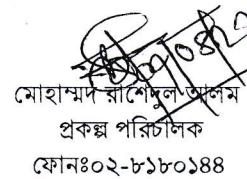 মোহাম্মদ রাশেদুল আলম
প্রকল্প পরিচালক
ফোনঃ০২-৮১৮০১৪৪